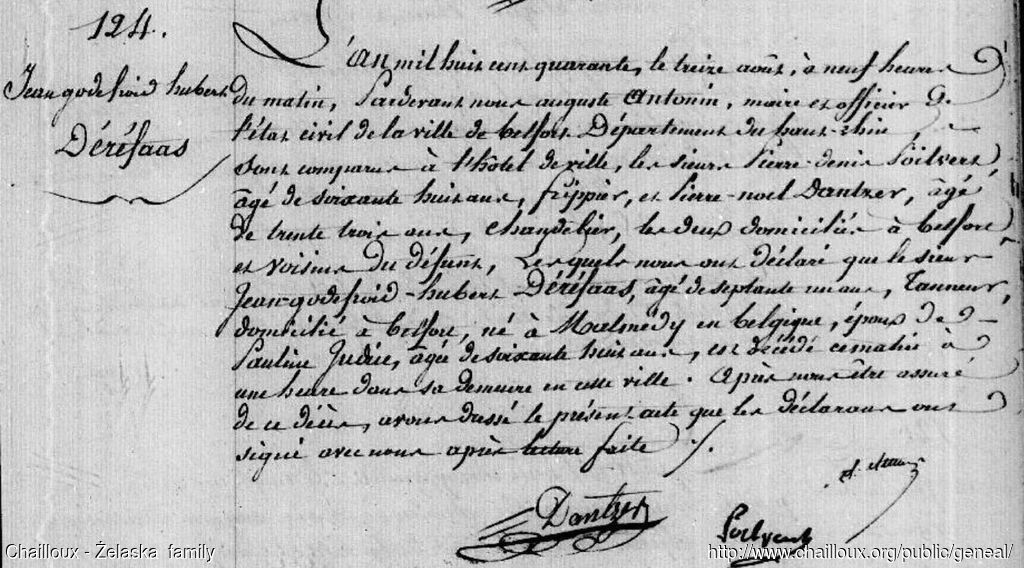 124.
Jean godefroid hubert
Déréfaas
L'an mil huit cent quarante, le treize août, à neuf heures
du matin, Pardevant nous auguste Antonin, maire et officier de
l'état civil de la ville de belfort Département du haut-rhin,
sont comparus à l'hôtel de ville, les sieurs Pierre-denis Poilvert
âgé de soixante huit ans, frippier, et Pierre-noel Dantzer, âgé
de trente trois ans, chandelier, les deux domiciliés à belfort
et voisins du défunt, Lesquels nous ont déclaré que le sieur
Jean-godefroid-hubert Déréfaas, âgé de septante un ans, Tanneur,
domicilié à belfort, né à Malmédy en belgique, époux de
Pauline Judice, âgée de soixante huit ans, est décédé ce matin à
une heure dans sa demeure en cette ville. Après nous être assuré
de ce décès, avons dressé le présent acte que les déclarans ont
signé avec nous après lecture faite /.
Dantzer
Poilvert
Chailloux - Želaska family
http://www.chailloux.org/public/geneal/